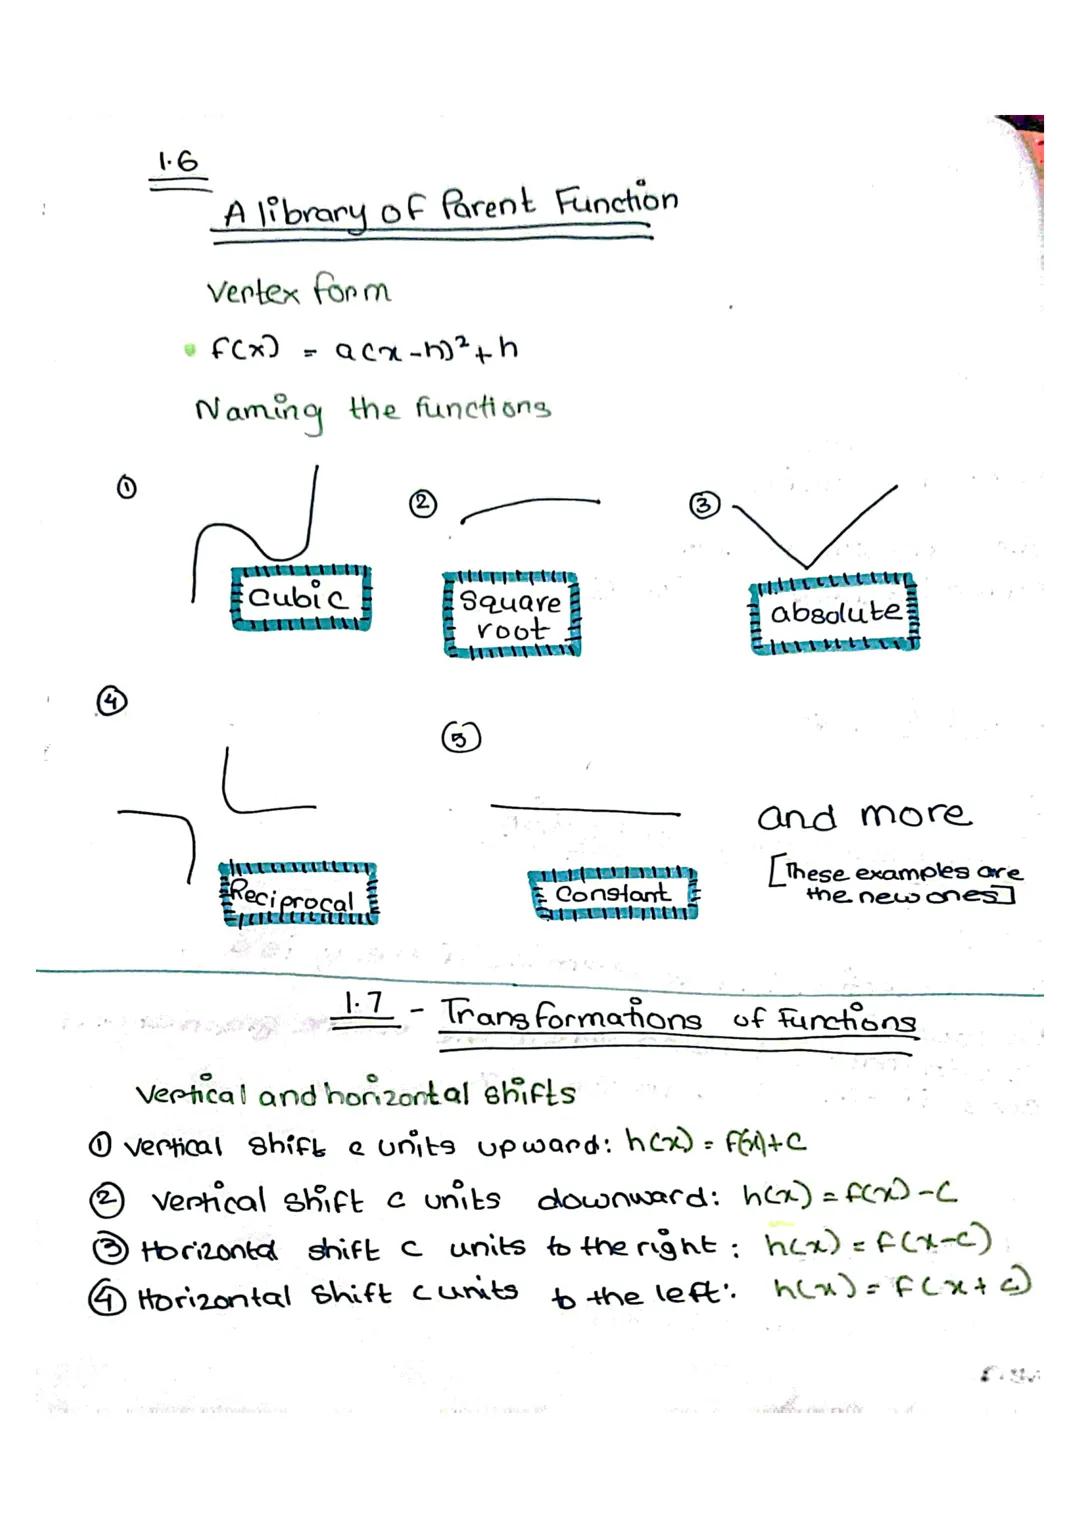 1.6
A library of Parent Function
Vertex form
f(x) = a(x-h)²+h
Naming the functions
①
②
③
cubic
Square
root
absolute
④
⑤
and more
[These examples are
the new ones]
Reciprocal
Constant
1.7 - Transformations of Functions
Vertical and horizontal shifts
① Vertical shift c units upward: h(x) = f(x)+c
② Vertical shift c units downward: h(x) = f(x)-c
③ Horizontal shift c units to the right: h(x) = f(x-c)
④ Horizontal shift c units to the left: h(x) = f(x+c)